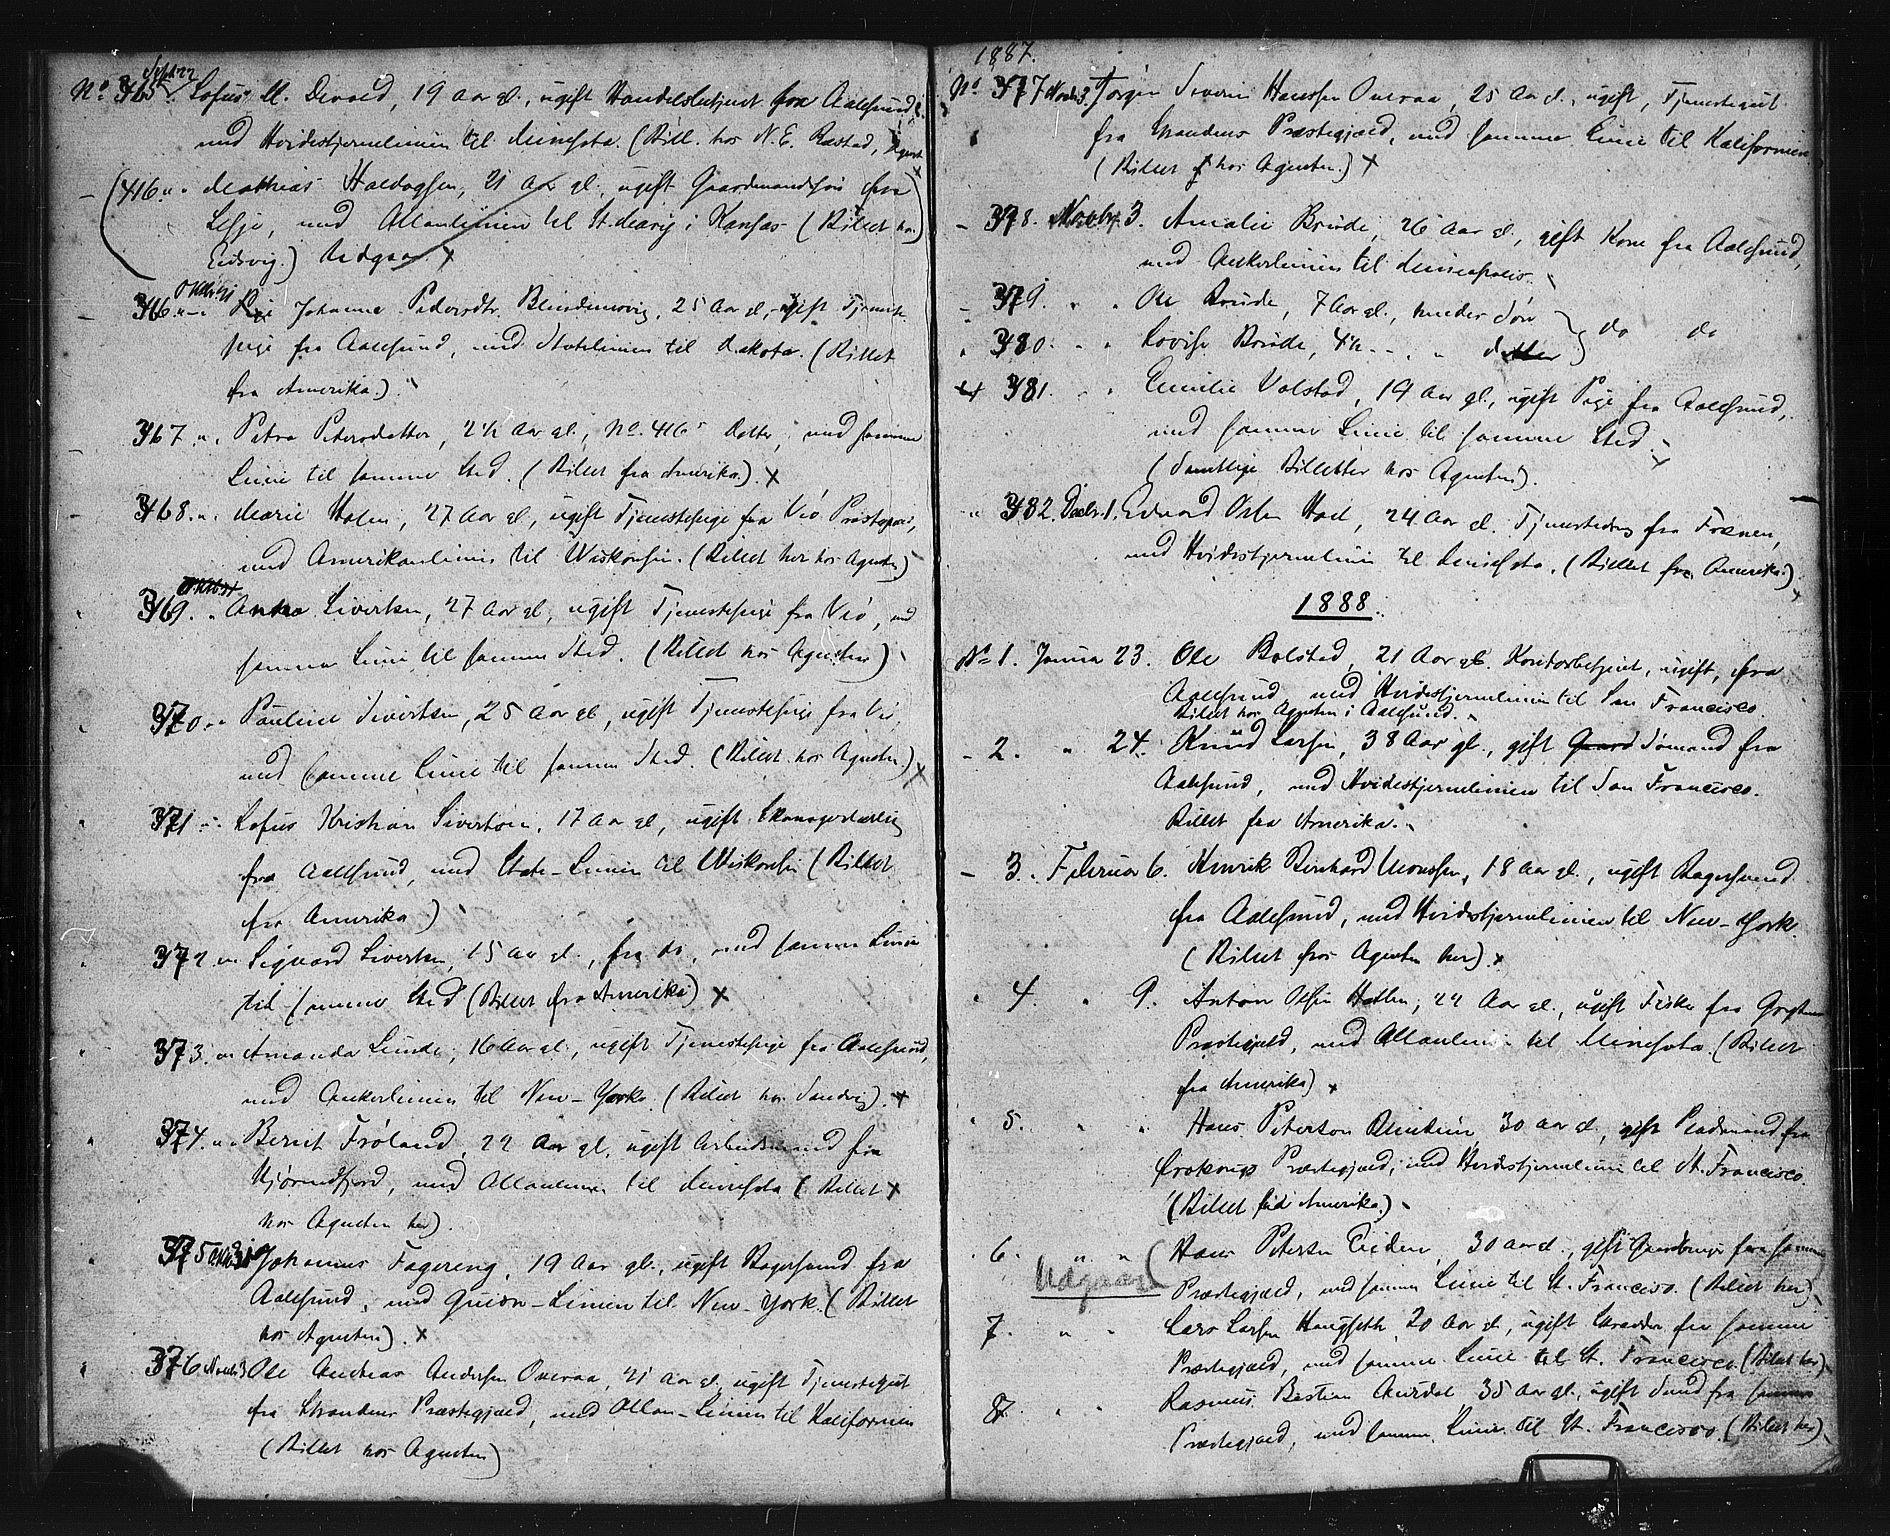 Septbr 22
No 365. Lofus M. Devold, 19 Aar gl., ugift Handelsbetjent fra Aalesund,
med Hvidestjernelinien til Minesota. (Bill. hos N. E. Røstad, Agent
(416. " Mathias Haldogsen, 21 Aar gl., ugift Gaardmandssøn fra
Lesje, med Allanlinien til St. Mary i Kansas (Billet hos
Eidsvig.) Udgaar. x
366. " Johanne Pedersdtr. Blindemsvig, 25 Aar gl., ugift Tjeneste-
pige fra Aalesund, med Statelinien til Dakota. (Billet
fra Amerika.)
367. " Petra Petersdatter, 2½ Aar gl., No. 416s Datter, med samme
Linie til samme Sted. (Billet fra Amerika.) x
368. " Marie Holen, 27 Aar gl., ugift Tjenestepige fra Vø Præstegj.,
med Amerikanlinien til Wiskonsin. (Billet her hos Agenten)
369. " Sivertsen, 27 Aar gl., ugift Tjenestepige fra Vø, med
samme Linie til samme Sted. (Billet hos Agenten)
370. " Pauline Sivertsen, 25 Aar gl., ugift Tjenestepige fra Vø,
med samme Linie til samme Sted. (Billet hos Agenten.) x
371. " Lofus Kristian Sivertsen, 17 Aar gl., ugift
fra Aalesund, med State-Linien til Wiskonsin (Billet
fra Amerika)
372. " Sigvard Sivertsen, 15 Aar gl., fra do, med samme Linie
til samme Sted (Billet fra Amerika) x
373. " Amanda Lunde, 16 Aar gl., ugift Tjenestepige fra Aalesund,
med Ankerlinien til New-York. (Billet hos Sandvig). x
374. " Bernt Frøland, 22 Aar gl., ugift Arbeidsmand fra
Hjørundfjord, med Allanlinien til Minesota (Billet x
hos Agenten her).
375 Johannes Fagereng, 19 Aar gl., ugift Bagersvend fra
Aalesund, med Guion-Linien til New-York. (Billet
hos Agenten). x
376 Novbr 3 Ole Andreas Andersen Overaa, 21 Aar gl., ugift Tjenestegut
fra Strandens Præstegjæld, med Allan-Linien til Kalifornien
(Billet hos Agenten)
1887.
No 377 Novbr 3. Jørgen Severin Hanssen Overaa, 25 Aar gl., ugift, Tjenestegut
fra Strandens Præstegjæld, med samme Linie til Kalifornien
(Billet hos Agenten.) x
378. Novbr. 3. Amalie Brude, 26 Aar gl., gift Kone fra Aalesund,
med Ankerlinien til Mineapolis.
379. " " Ole Brude, 7 Aar gl., hendes Søn } do do
380. " " Lovise Brude, 4½ - " " datter
381. " " Emilie Valstad, 19 Aar gl., ugift Pige fra Aalesund,
med samme Linie til samme Sted.
(Samtlige Billetter hos Agenten).
382. Decbr. 1. Edvard Olsen Hoel, 24 Aar gl. Tjenestedreng fra Frænen,
med Hvidestjernelinien til Minesota. (Billet fra Amerika.)
1888.
No 1. Januar 23. Ole Bolstad, 21 Aar gl. Kontorbetjent, ugift, fra
Aalesund, med Hvidestjernelinien til San Francisco.
Billet hos Agenten i Aalesund.
2. " 24. Knud Larsen, 38 Aar gl., gift Gaard Sømand fra
Aalesund, med Hvidestjernelinien til San Francisco.
Billet fra Amerika.
3. Februar 6. Henrik Bernhard Monssen, 18 Aar gl., ugift Bagersvend
fra Aalesund, med Hvidestjernelinien til New-York.
(Billet hos Agenten her). x
4. " 9. Anton Olsen Hatlen, 22 Aar gl., ugift Fisker fra Grytten
Præstegjæld, med Allanlinien til Minesota. (Billet
fra Amerika) x
5. " " Hans Peterson Blindheim, 30 Aar gl., gift Pladsmand fra
Præstegjæld, med Hvidestjernelinien til St. Francisco.
(Billet fra Amerika.)
6. " " Hans Petersen Eidem, 30 Aar gl., gift fra samme
Udgaar ( Præstegjæld, med samme Linie til St. Francisco. (Billet her)
7. " " Lars Larsen Haugseth, 20 Aar gl., ugift Skrædder fra samme
Præstegjæld, med samme Linie til St. Francisco. (Billet her)
8. " " Rasmus Bastian Aursdal 35 Aar gl., ugift fra samme
Præstegjæld, med samme Linie til St. Francisco. (Billet her)